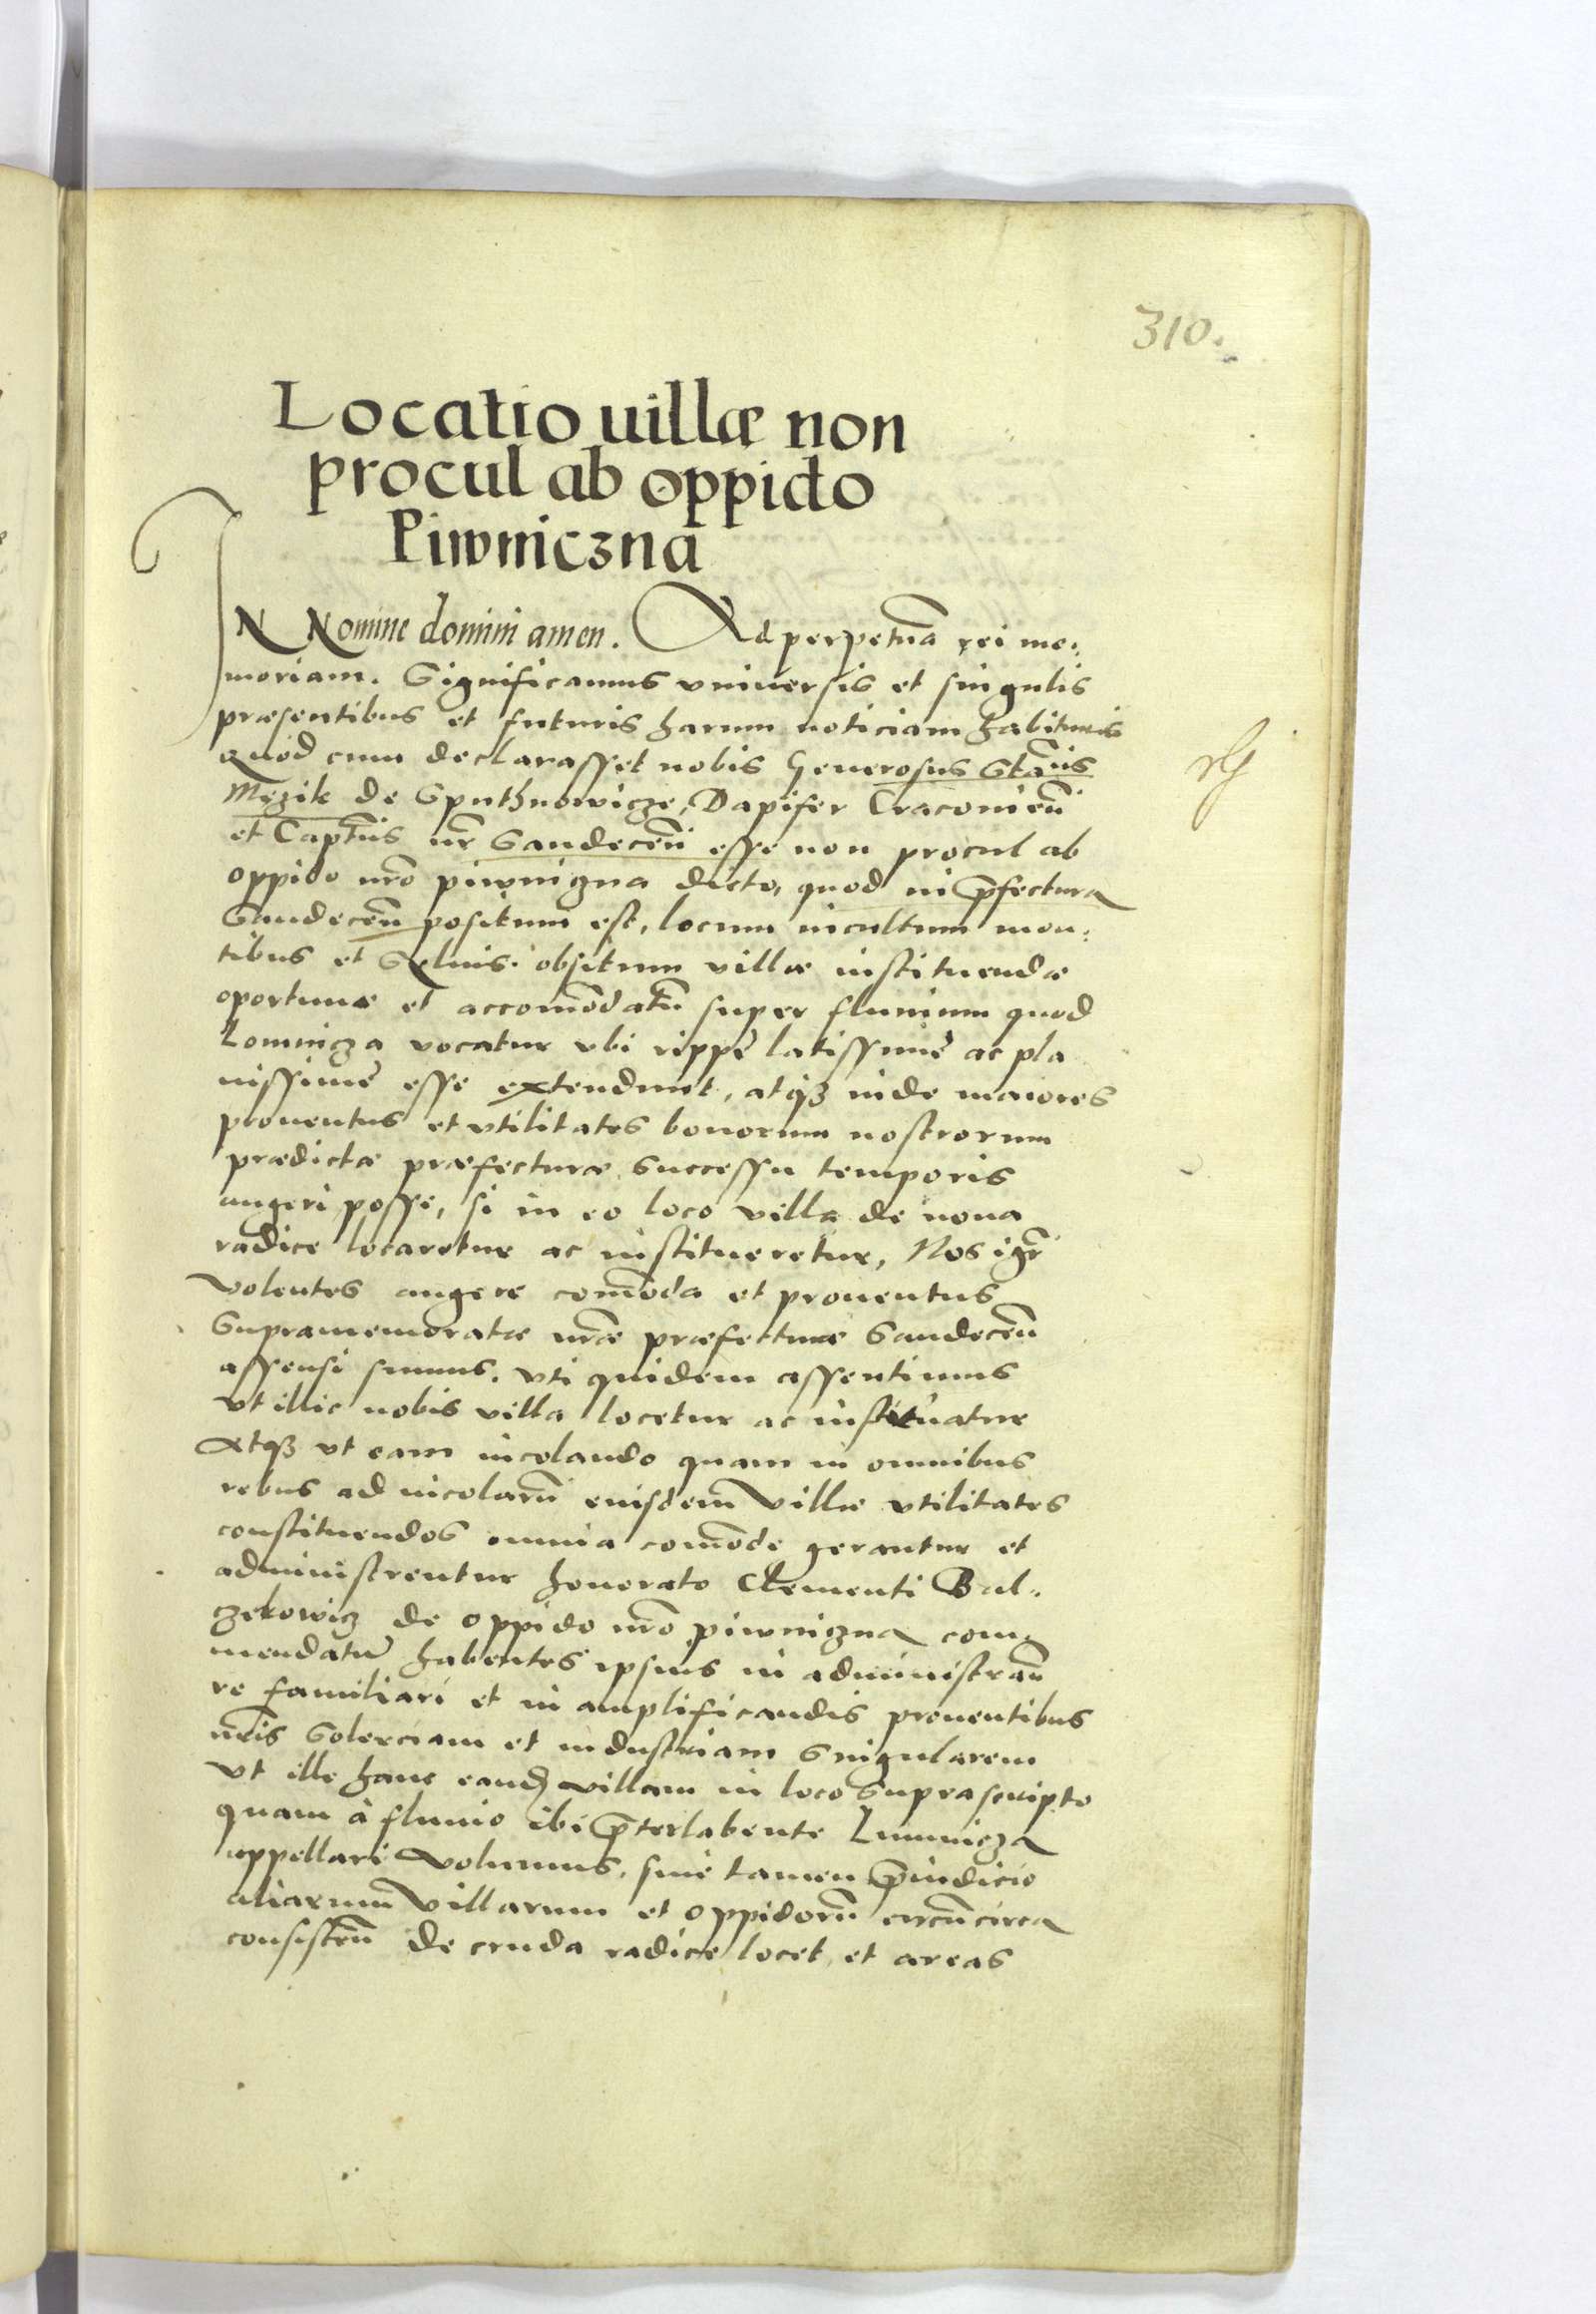 310.
Locatio uillæ non
procul ab oppido
Piwniczna
IN Nomine domini amen. Ad perpetuā rei me:
moriam. Significamus vniuersis et singulis
præsentibus et futuris harum noticiam habituris
quod cum declarasset nobis Generosus Stāus
Mężik de Sputhnowicze, Dapifer Cracouień
et Capt̄us nr̄ Sandeceñ esse non procul ab
oppido nr̄o piwniczna dicto, quod in p̄fectura
Sandeceñ positum est, locum incultum mon:
tibus et Syluis obsitum villæ instituendæ
oportunæ et accom̄odatū super fluuium quod
Lomnicza vocatur vbi rippè latissimè ac pla
nissimè esse extendunt, atqȝ inde maiores
prouentus et vtilitates bonorum nostrorum
prædictæ præfecturæ successu temporis
augeri posse, si in eo loco villa de noua
radice locaretur ac institueretur, Nos igr̄
volentes augere com̄oda et prouentus
Supramemoratæ nr̄æ præfecturæ Sandeceñ
assensi sumus. vti quidem assentimus
vt illic nobis villa locetur ac instituatur
Atqȝ vt eam incolando quam in omnibus
rebus ad incolarū euisdem villæ vtilitates
constituendos omnia com̄ode gerantur et
administrentur honorato Clementi Bal:
czekowicz de oppido nr̄o piwniczna com:
mendatū habentes ipsius in administrañ
re familiari et in amplificandis prouentibus
nr̄is Solerciam et industriam Singularem
vt ille hanc eand villam in loco Suprascripto
quam à fluuio ibi p̄terlabente Lumnicza
appellari volumus, sine tamen p̄iudicio
aliarum villarum et oppidorū circūcirca
consisteñ de cruda radice locet, et areas